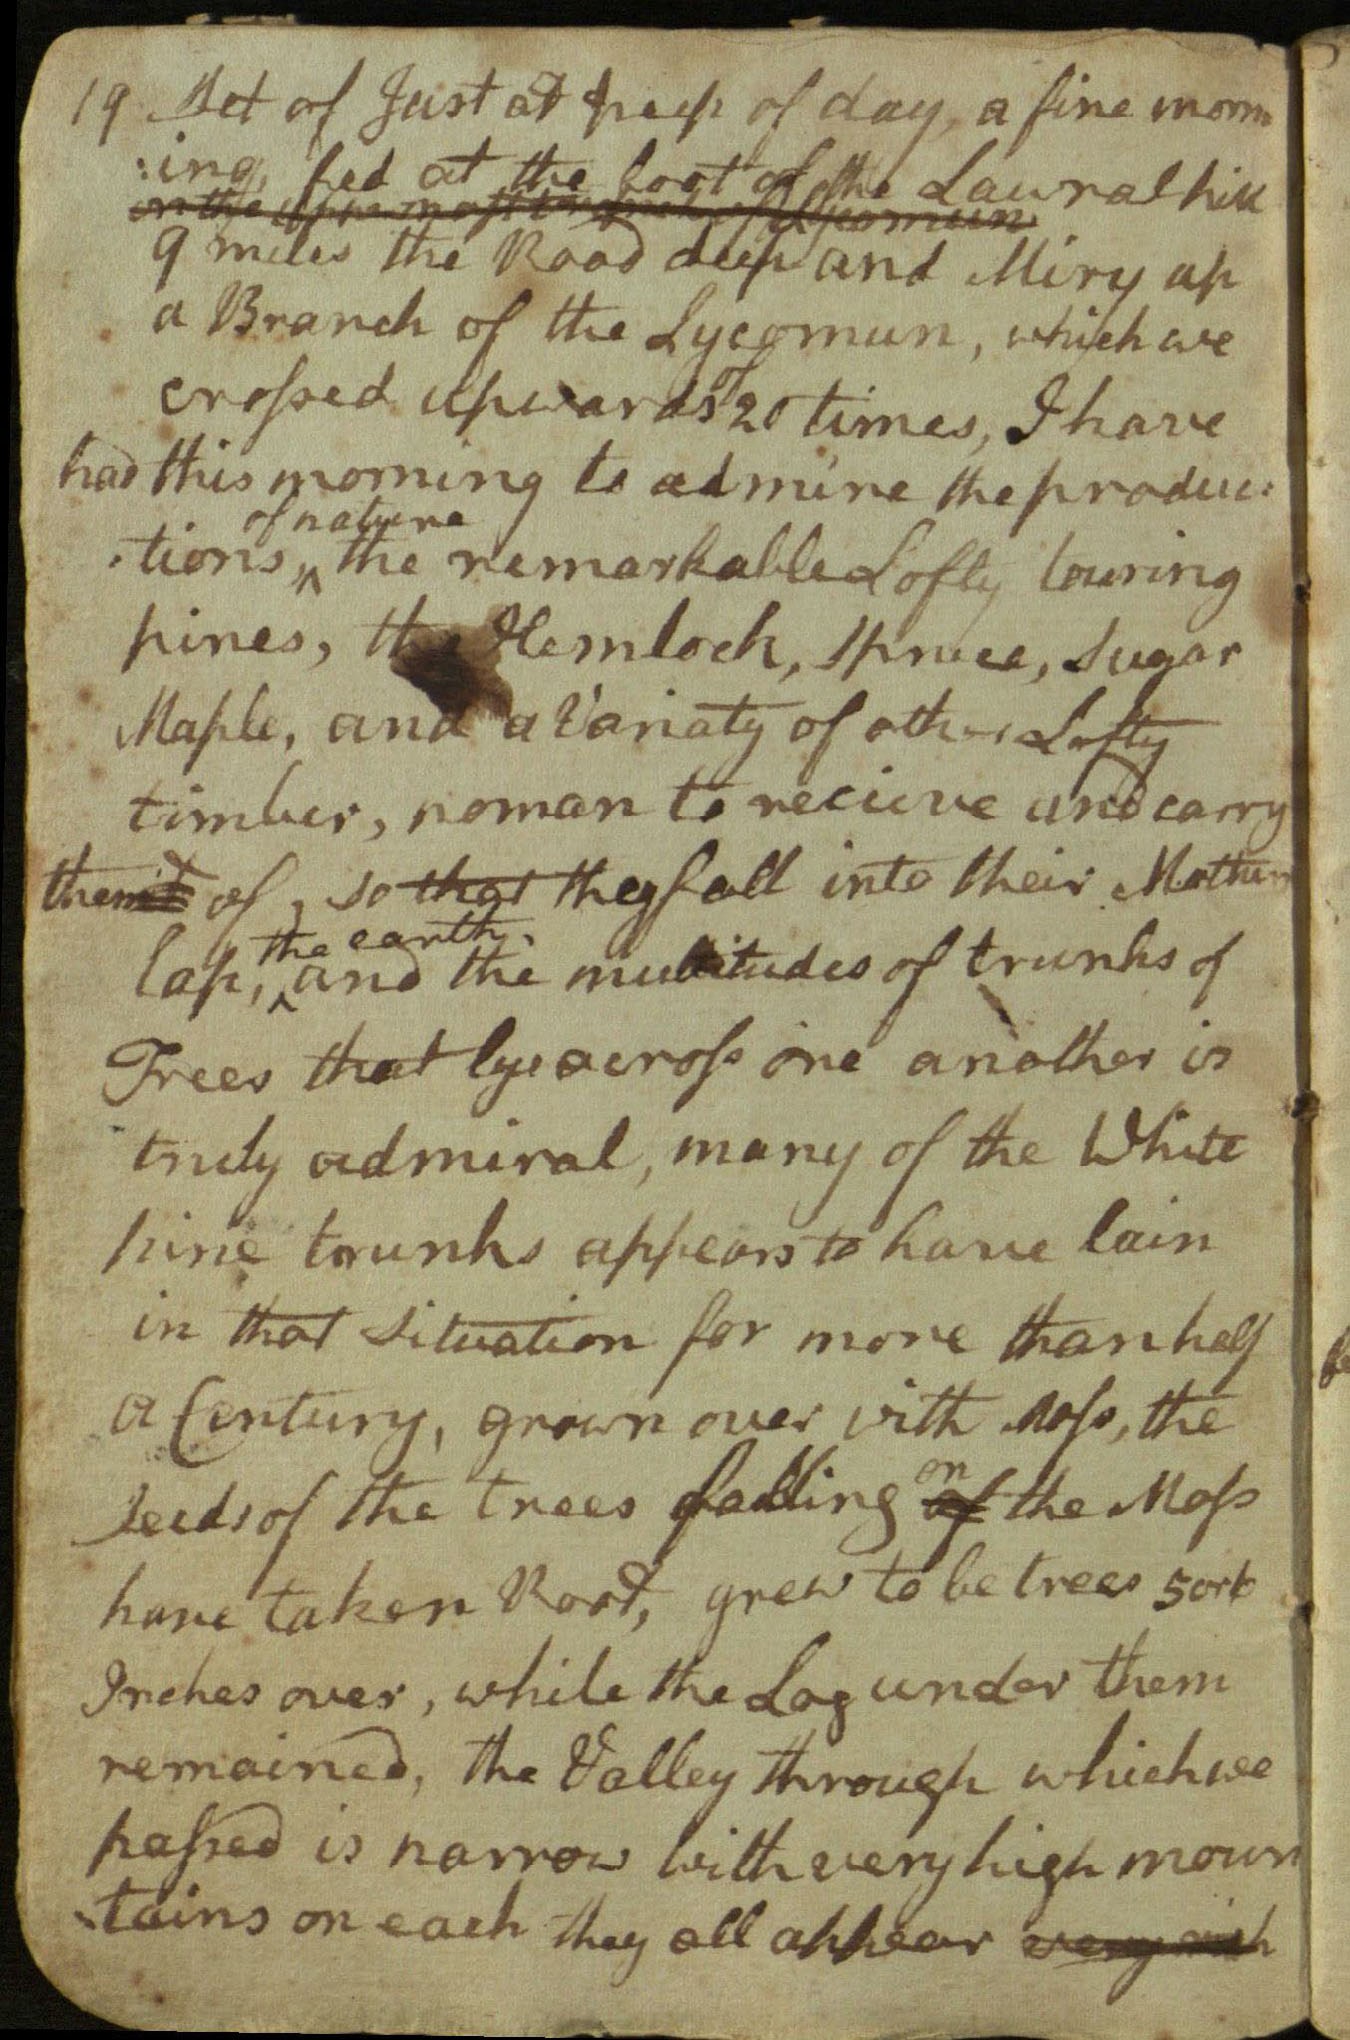 19 Set of Just at peep of day, a fine morn
:ing, fed at the foot of the Lawral hill
on the uppermost branch of Lycomun
9 miles the Road deep and Miry up
a Branch of the Lycomun, which we
crossed upwards of 20 times, I have
had this morning to admire the produc:
:tions, of nature the remarkable Lofty touring
pines, the Hemlock, Spruce, Sugar
Maple, and a Variaty of other Lofty
timber, noman to recieve and carry
them it of, so that they fall into their Mothers
lap, the earth, and the multitudes of trunks of
Trees that lye across one another is
truly admiral, many of the White
pine trunks appears to have lain
in that Situation for more than half
a Century, grown over with Moss, the
Seeds of the trees falling on of the Moss
have taken Root, grew to be trees 5 or 6
Inches over, while the Log under them
remained, the Valley through which we
passed is narrow with very high moun
:tains on each they all appear very rich